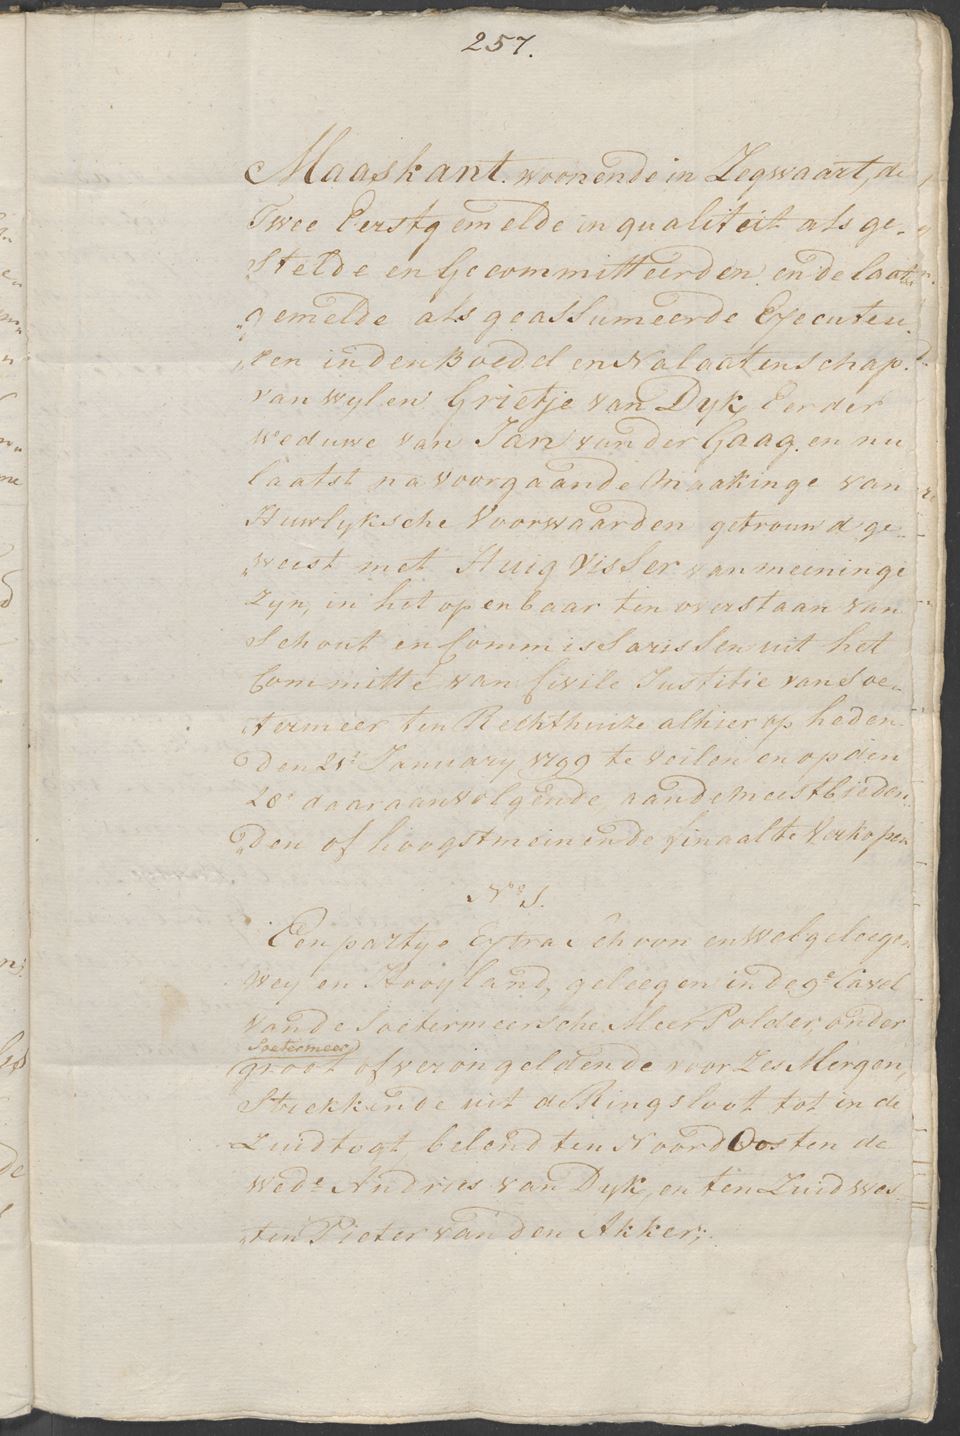 257.
Maaskant. woonende in Zegwaart, de
Twee Eerstgemelde in qualiteit als ge-
stelde en Gecommitteerden en de laatst
"gemelde als geassumeerde Executeu-
"ren in den Boedel en Nalaatenschap.
van wylen Grietje van Dyk, Eerder
weduwe van Jan van der Gaag. en nu
laatst na voorgaande Maakinge van
Huwlyksche Voorwaarden getrouwd ge-
"weest met Huig Visser van meininge
zyn, in het openbaar ten overstaan van
Schout en Commissarissen uit het
Committé van Civile Justitie van Soe-
termeer ten Rechthuize alhier op heden
den 21e January 1799 te veilen en op den
28e daaraanvolgende aan de meestbieden
"den of hoogstmeinende finaal te Verkopen
No 1.
Een partye Extra Schoon en welgeleegen
Wey en Hooyland, geleegen in de 9e Cavel
van de Soetermeersche Meer Polder, onder
Soetermeer
groot of verongeldende voor Zes Mergen,
Strekkende uit de Ringsloot tot in de
Zuidtogt, belend ten Noord Oosten de
Wede Andries van Dyk, en ten Zuid Wes-
"ten Pieter van den Akker;